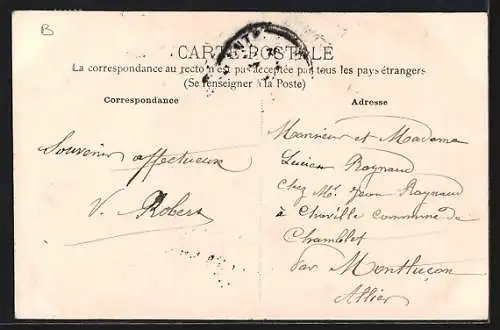 B
CARTE POSTALE
La correspondance au recto n'est pas acceptée par tous les pays étrangers
(Se renseigner à la Poste)
Correspondance
Souvenir affectueux
V. Robert
Adresse
Monsieur et Madame
Lucien Raynaud
Chez Mr. Jean Raynaud
à Chaville commune de
Chamblet
par Montluçon
Allier